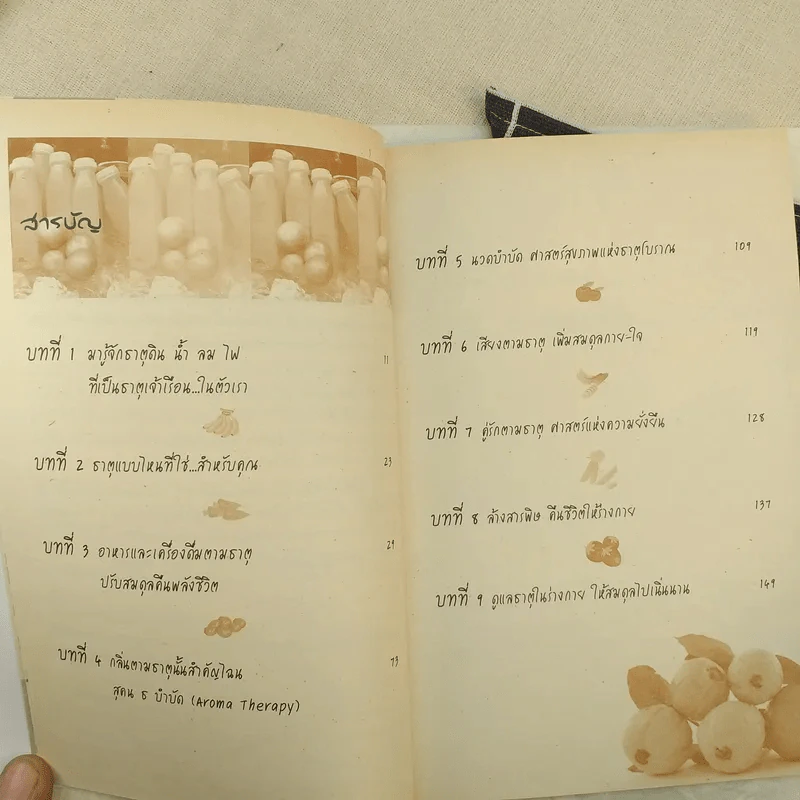 สารบัญ
บทที่ 1 มารู้จักธาตุดิน น้ำ ลม ไฟ 11
ที่เป็นธาตุเจ้าเรือน...ในตัวเรา
บทที่ 2 ธาตุแบบไหนที่ใช่...สำหรับคุณ 23
บทที่ 3 อาหารและเครื่องดื่มตามธาตุ 29
ปรับสมดุลคืนพลังชีวิต
บทที่ 4 กลิ่นตามธาตุนั้นสำคัญไฉน 73
สุคนธบำบัด (Aroma Therapy)
บทที่ 5 นวดบำบัด ศาสตร์สุขภาพแห่งธาตุโบราณ 109
บทที่ 6 เสียงตามธาตุ เพิ่มสมดุลกาย-ใจ 119
บทที่ 7 คู่รักตามธาตุ ศาสตร์แห่งความยั่งยืน 128
บทที่ 8 ล้างสารพิษ คืนชีวิตให้ร่างกาย 137
บทที่ 9 ดูแลธาตุในร่างกาย ให้สมดุลไปเนิ่นนาน 149